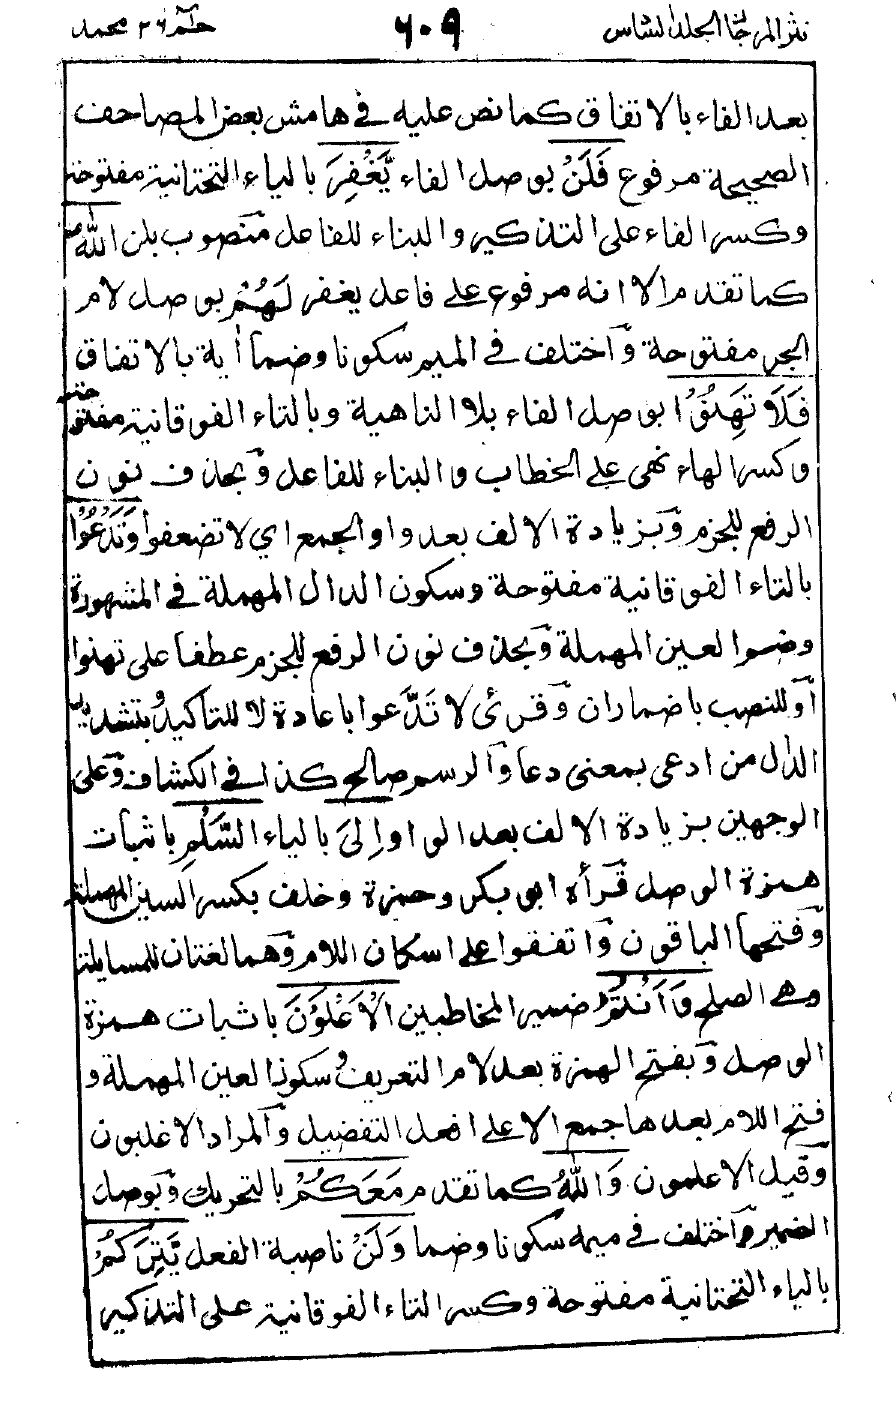 نثر المرجان المجلد السادس ٦٠٩ حٰمٓ ٢٦ محمد
بعد الفاء بالاتفاق كما نص عليه في هامش بعض المصاحف
الصحيحة مرفوع فَلَنْ بوصل الفاء يَّغْفِرَ بالياء التحتانية مفتوحة
وكسر الفاء على التذكير والبناء للفاعل منصوب بلن اللّٰهُ
كما تقدم الا انه مرفوع على فاعل يغفر لَهُمْ بوصل لام
الجر مفتوحة وَاختلف في الميم سكونا وضما أية بالاتفاق
فَلَا تَهِنُوْا بوصل الفاء بلا الناهية وبالتاء الفوقانية مفتوحة
وكسر الهاء نهي على الخطاب والبناء للفاعل وَبحذف نون
الرفع للجزم وَبزيادة الالف بعد واو الجمع اي لا تضعفوا وَتَدْعُوْا
بالتاء الفوقانية مفتوحة وسكون الدال المهملة في المشهورة
وضم العين المهملة وَبحذف نون الرفع للجزم عطفا على تهنوا
اَو للنصب باضمار ان وَقرئ لا تَدَّعوا باعادة لا للتاكيد وبتشديد
الدال من ادعى بمعنى دعا وَالرسم صالح كذا في الكشاف وَعلى
الوجهين بزيادة الالف بعد الواو اِلَى بالياء السَّلْمِ باثبات
همزة الوصل قَرأه ابو بكر وحمزة وخلف بكسر السين المهملة
وَفتحها الباقون وَاتفقوا على اسكان اللام وَهما لغتان للمسايلة
وهي الصلح وَاَنْتُمُ ضمير المخاطبين الْاَعْلَوْنَ باثبات همزة
الوصل وَبفتح الهمزة بعد لام التعريف وسكون العين المهملة و
فتح اللام بعدها جمع الاعلى افعل التفضيل وَالمراد الاغلبون
وَقيل الاعلمون وَاللّٰهُ كما تقدم مَعَكُمْ بالتحريك وَبوصل
الضمير وَاختلف في ميمه سكونا وضما وَلَنْ ناصبة الفعل يَّتِرَكُمْ
بالياء التحتانية مفتوحة وكسر التاء الفوقانية على التذكير